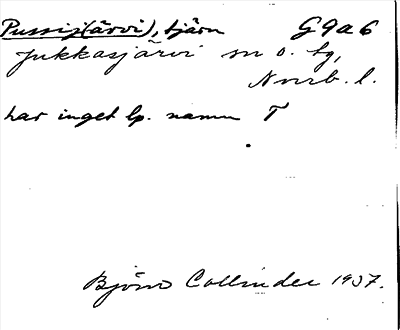 Pussij(ärvi), tjärn G9a6
Jukkasjärvi sn o. tg,
Nrrb. l.
har inget lp. namn T
Björn Collinder 1937.